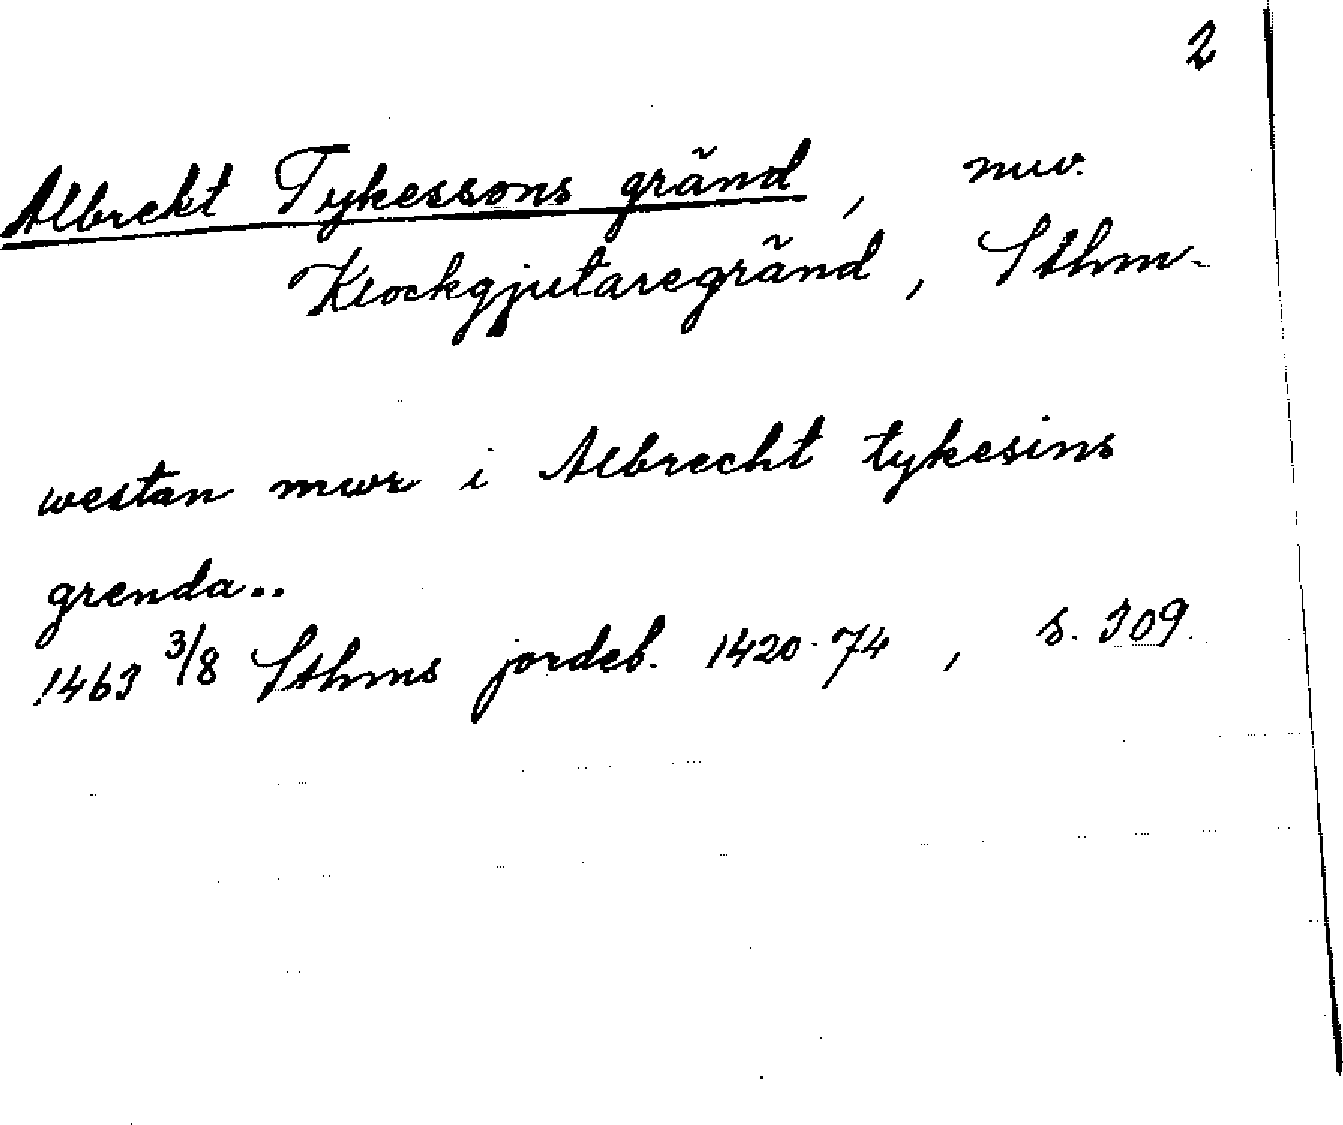 2
Albrekt Tykessons gränd, nuv.
Klockgjutaregränd, Sthm.
westan mwr i Albrecht tykesins
grenda..
1463 3/8 Sthms jordeb. 1420-74, s. 309.